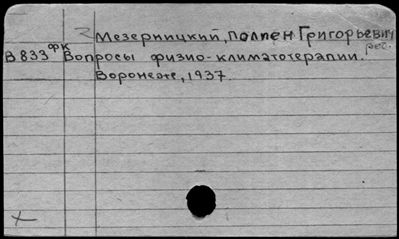 Мезерницкий, Полиен Григорьевич
рес.
В 833 ФК Вопросы физио-климатотерапии.
Воронеж, 1937.